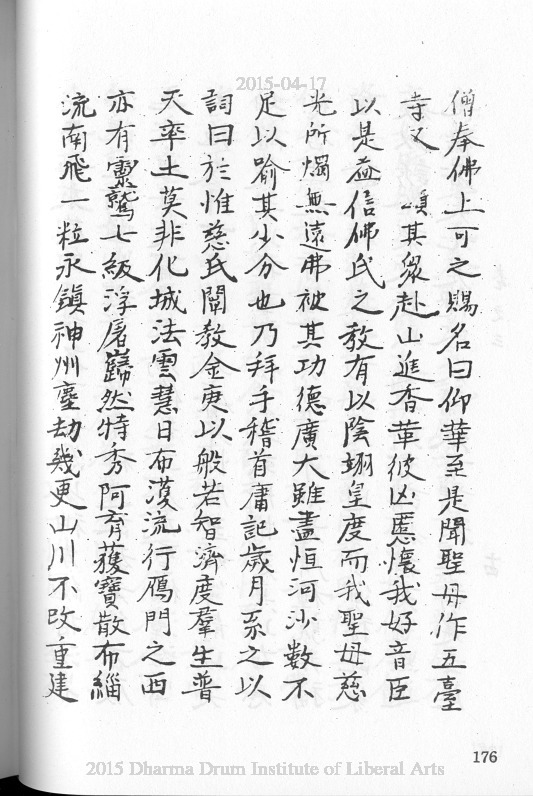 2015-04-17
僧奉佛上可之賜名曰仰華至是聞聖母作五臺
寺又 頌其衆赴山進香革彼凶慝懷我好音臣
以是益信佛氏之教有以陰翊皇度而我聖母慈
光所燭無遠弗被其功德廣大雖盡恒河沙數不
足以喻其少分也乃拜手稽首庸記歲月系之以
詞曰於惟慈氏闡教金庚以般若智濟度羣生普
天率土莫非化城法雲慧日布濩流行鴈門之西
亦有靈鷲七級浮屠巋然特秀阿育獲寶散布緇
流南飛一粒永鎮神州塵劫幾更山川不改重建
176
2015 Dharma Drum Institute of Liberal Arts